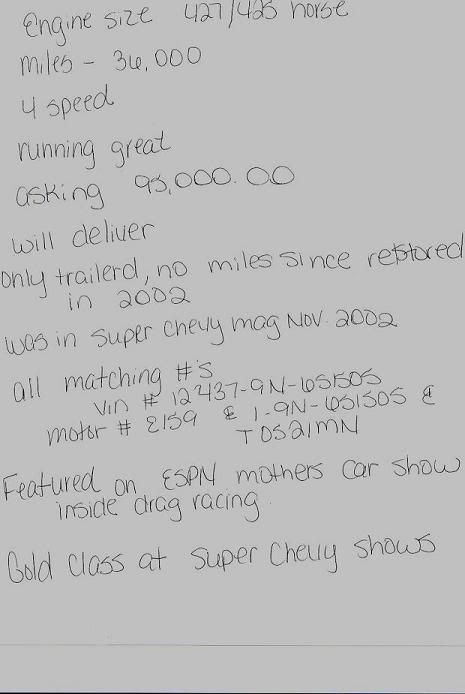 Engine size 427/425 horse
miles - 36,000
4 speed
running great
asking 95,000.00
will deliver
only trailerd, no miles since restored
in 2002
was in super chevy mag Nov. 2002
all matching #'s
Vin # 12437-9N-651505
motor # 2159 & 1-9N-651505 &
T0521MN
Featured on ESPN mothers car show
inside drag racing.
Gold Class at super Chevy shows